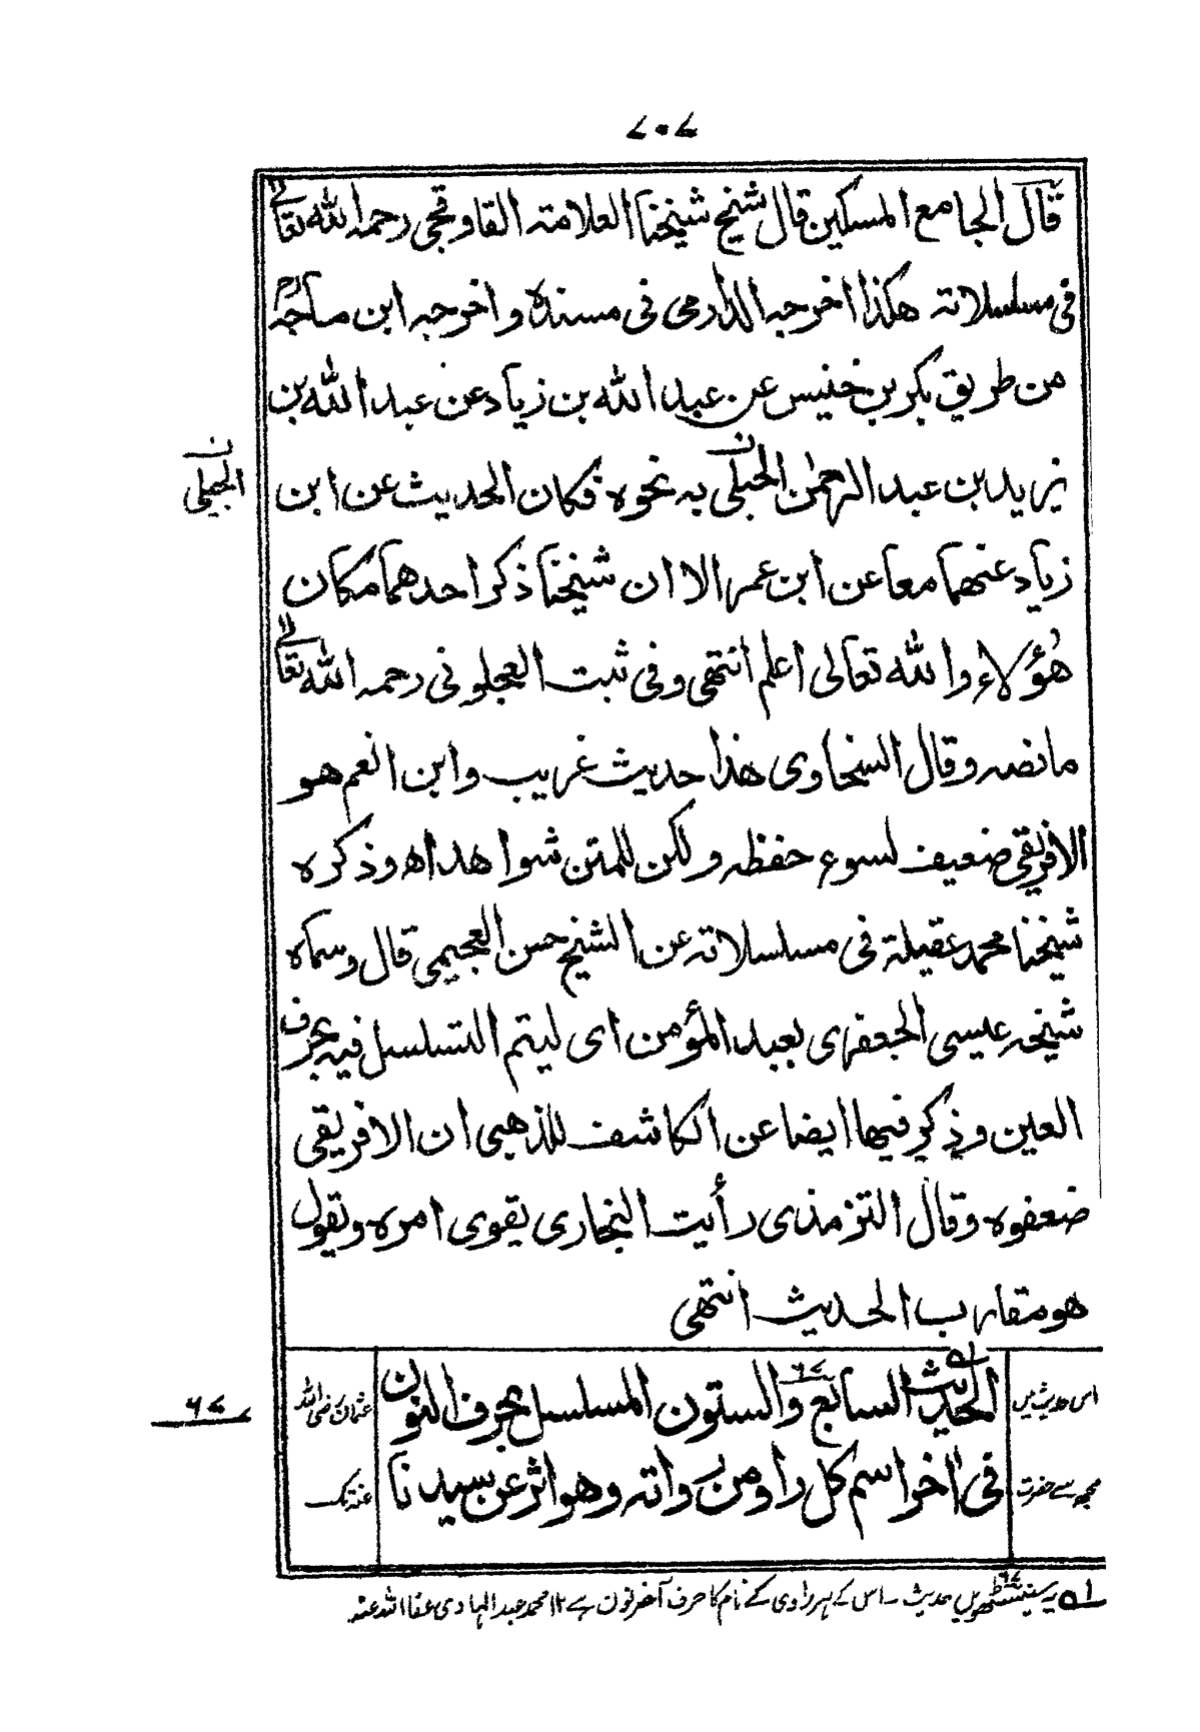 ۷۰۷
قال الجامع المسكين قال شيخ شيخنا العلامة القاوقجى رحمه الله تعالى
فى مسلسلاته هكذا اخرجه الدارمى فى مسنده واخرجه ابن ماجه
من طريق بكر بن خنيس عن عبد الله بن زياد عن عبد الله بن
يزيد بن عبد الرحمٰن الحبلى به نحوه فكان الحديث عن ابن
الجبيلى
زياد عنهما معا عن ابن عمر الا ان شيخنا ذكر احدهما مكان
هؤلاء والله تعالى اعلم انتهى وفى ثبت العجلونى رحمه الله تعالى
ما نصه وقال السخاوى هذا حديث غريب وابن انعم هو
الافريقى ضعيف لسوء حفظه ولكن للمتن شواهد اه وذكره
شيخنا محمد عقيلة فى مسلسلاته عن الشيخ حسن العجيمى قال وسماه
شيخه عيسى الجعفرى بعبد المؤمن اى ليتم التسلسل فيه بحرف
العين وذكر فيها ايضا عن الكاشف للذهبى ان الافريقى
ضعفوه وقال الترمذى رأيت البخارى يقوى امره ويقول
هو مقارب الحديث انتهى
اس حدیث میں
الحديث السابع والستون المسلسل بحرف النون
عثمان رضی اللہ
۶۷
مجھ سے حضرت
فى اٰخر اسم كل راو من رواته وهو اثر عن سيدنا
عنہ تک
لہ یہ سینسٹھویں ۶۷ حدیث ۔ اس کے ہر راوی کے نام کا حرف آخر نون ہے ۱۲ محمد عبد الہادی عفا اللہ عنہ